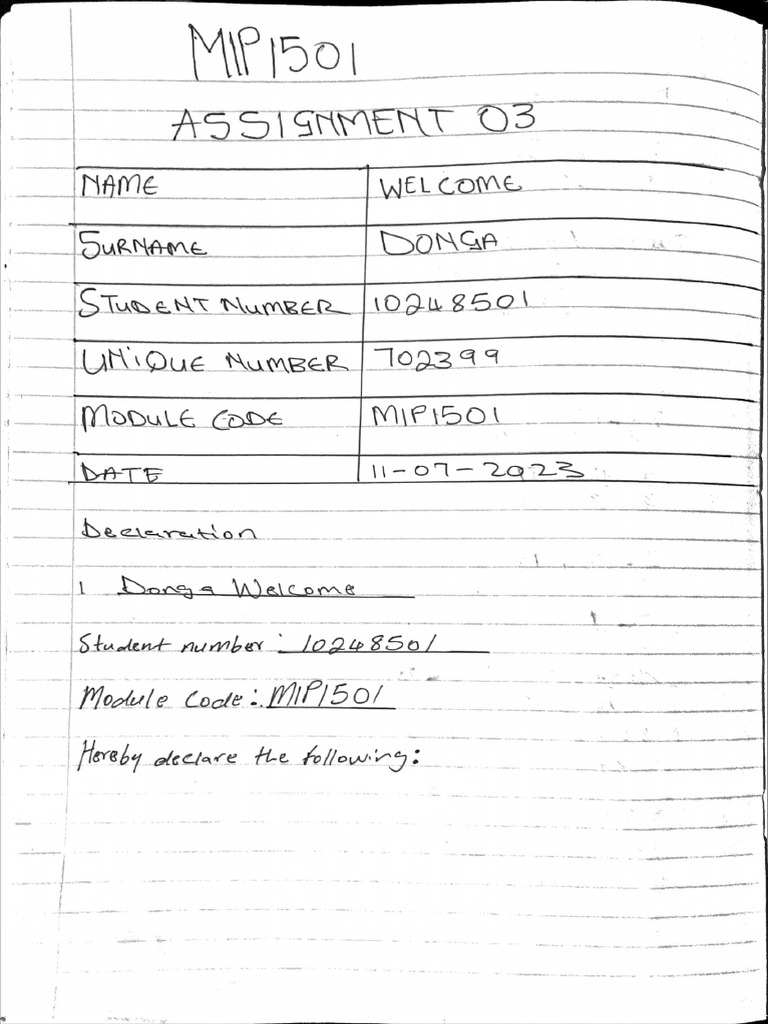 MIP1501
ASSIGNMENT 03
NAME WELCOME
SURNAME DONGA
STUDENT NUMBER 10248501
UNIQUE NUMBER 702399
MODULE CODE MIP1501
DATE 11-07-2023
Declaration
I Donga Welcome
Student number: 10248501
Module code: MIP1501
Hereby declare the following: